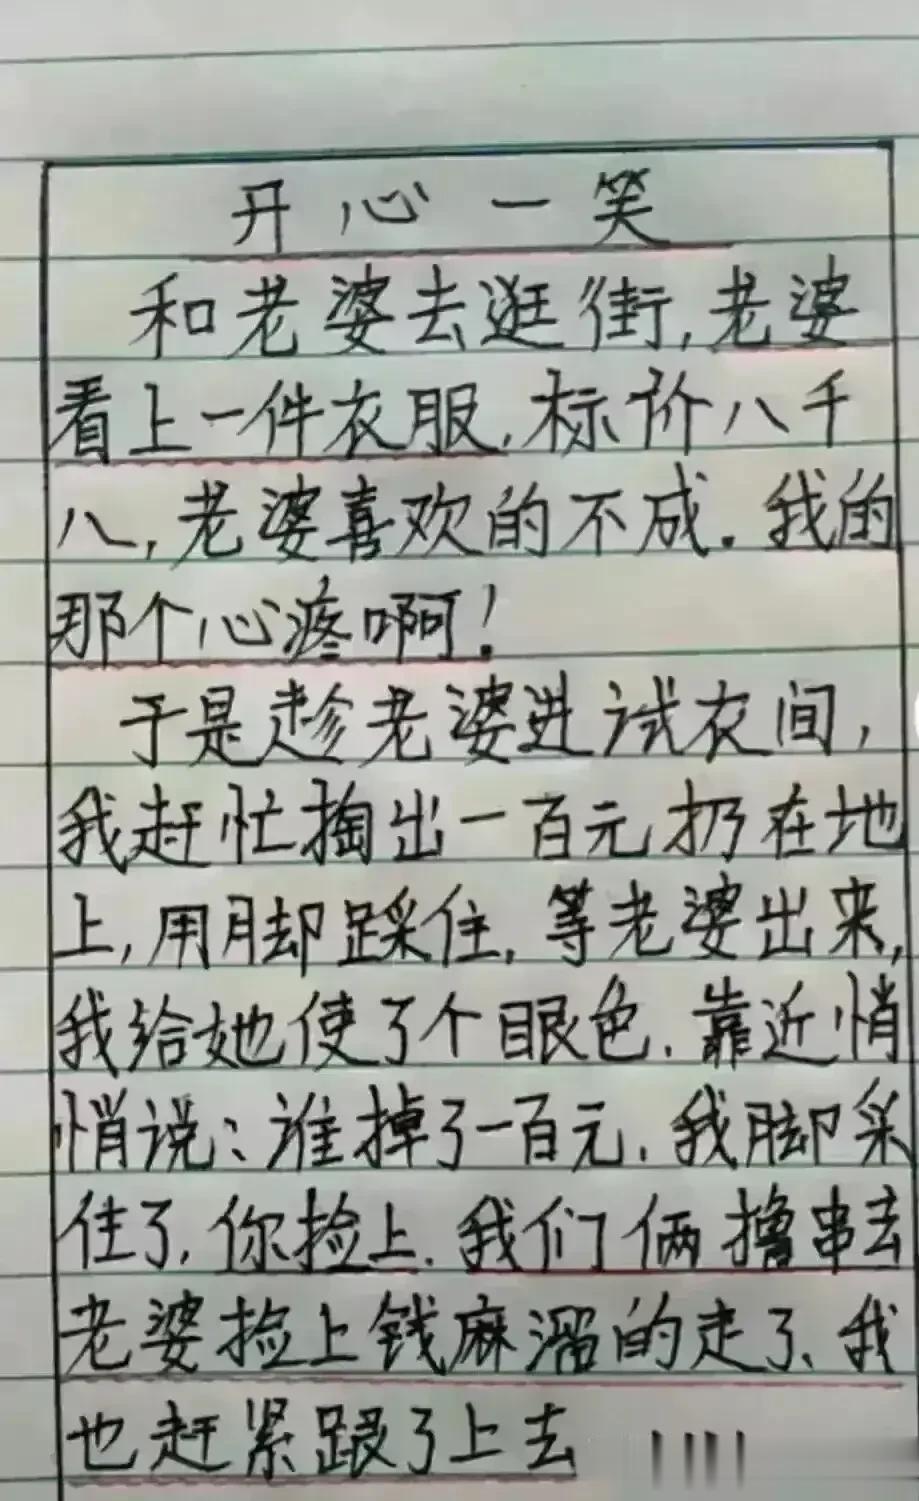 开心一笑
和老婆去逛街,老婆
看上一件衣服,标价八千
八,老婆喜欢的不成。我的
那个心疼啊!
于是趁老婆进试衣间,
我赶忙掏出一百元扔在地
上,用脚踩住,等老婆出来,
我给她使了个眼色,靠近悄
悄说:谁掉了一百元,我脚采
住了,你捡上,我们俩撸串去
老婆捡上钱麻溜的走了、我
也赶紧跟了上去